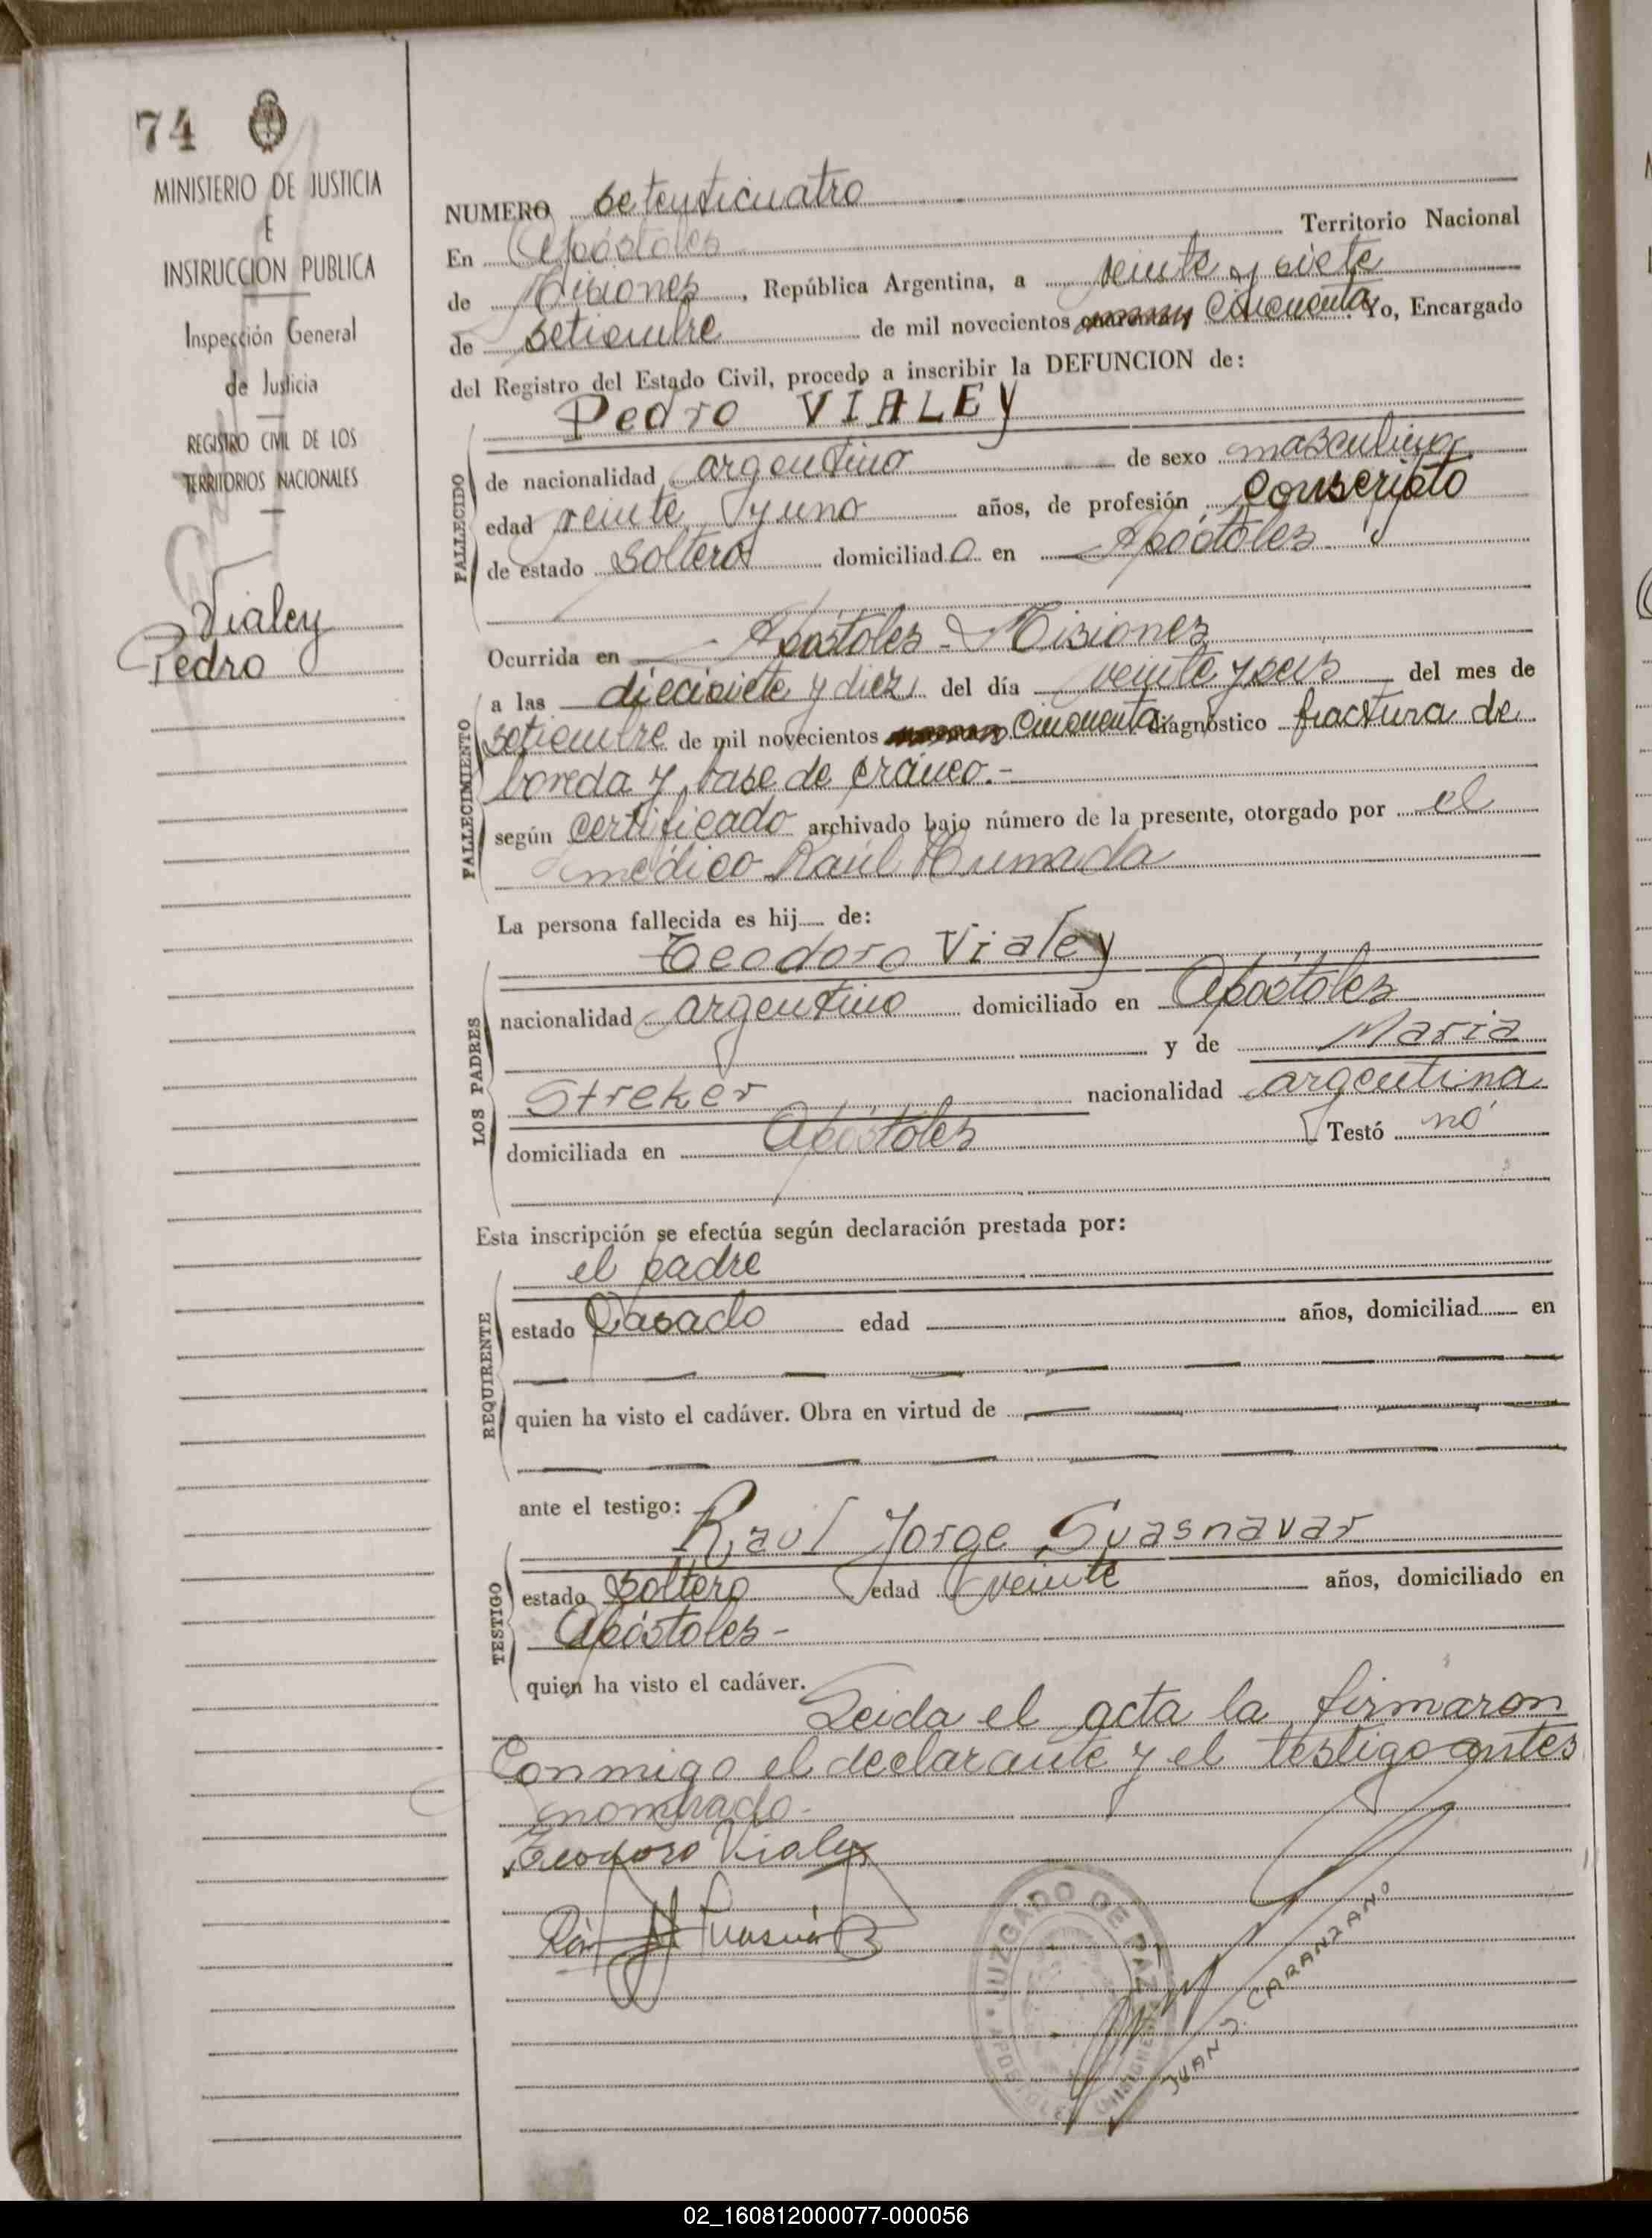 74
MINISTERIO DE JUSTICIA
E
INSTRUCCION PUBLICA
Inspección General
de Justicia
REGISTRO CIVIL DE LOS
TERRITORIOS NACIONALES
Vialey
Pedro
NUMERO setenticuatro
En Apóstoles Territorio Nacional
de Misiones, República Argentina, a veinte y siete
de setiembre de mil novecientos cincuenta Yo, Encargado
del Registro del Estado Civil, procedo a inscribir la DEFUNCION de:
Pedro VIALEY
FALLECIDO
de nacionalidad argentino de sexo masculino
edad veinte y uno años, de profesión Conscripto
de estado soltero domiciliado en Apóstoles
Ocurrida en Apóstoles - Misiones
FALLECIMIENTO
a las diecisiete y diez del día veinte y seis del mes de
setiembre de mil novecientos cincuenta diagnóstico fractura de
boveda y base de cráneo.-
según certificado archivado bajo número de la presente, otorgado por el
médico Raúl Humada
La persona fallecida es hij de:
LOS PADRES
Teodoro Vialey
nacionalidad argentino domiciliado en Apóstoles
y de Maria
Streker nacionalidad argentina
domiciliada en Apóstoles Testó nó
Esta inscripción se efectúa según declaración prestada por:
REQUIRENTE
el padre
estado Casado edad años, domiciliad en
quien ha visto el cadáver. Obra en virtud de
ante el testigo:
TESTIGO
Raul Jorge Suasnavar
estado soltero edad veinte años, domiciliado en
Apóstoles -
quien ha visto el cadáver.
Leida el acta la firmaron
Conmigo el declarante y el testigo antes
nombrado.-
Teodoro Vialey
JUZGADO DE PAZ
APOSTOLES (MISIONES)
JUAN J. CARANZANO
02_160812000077-000056